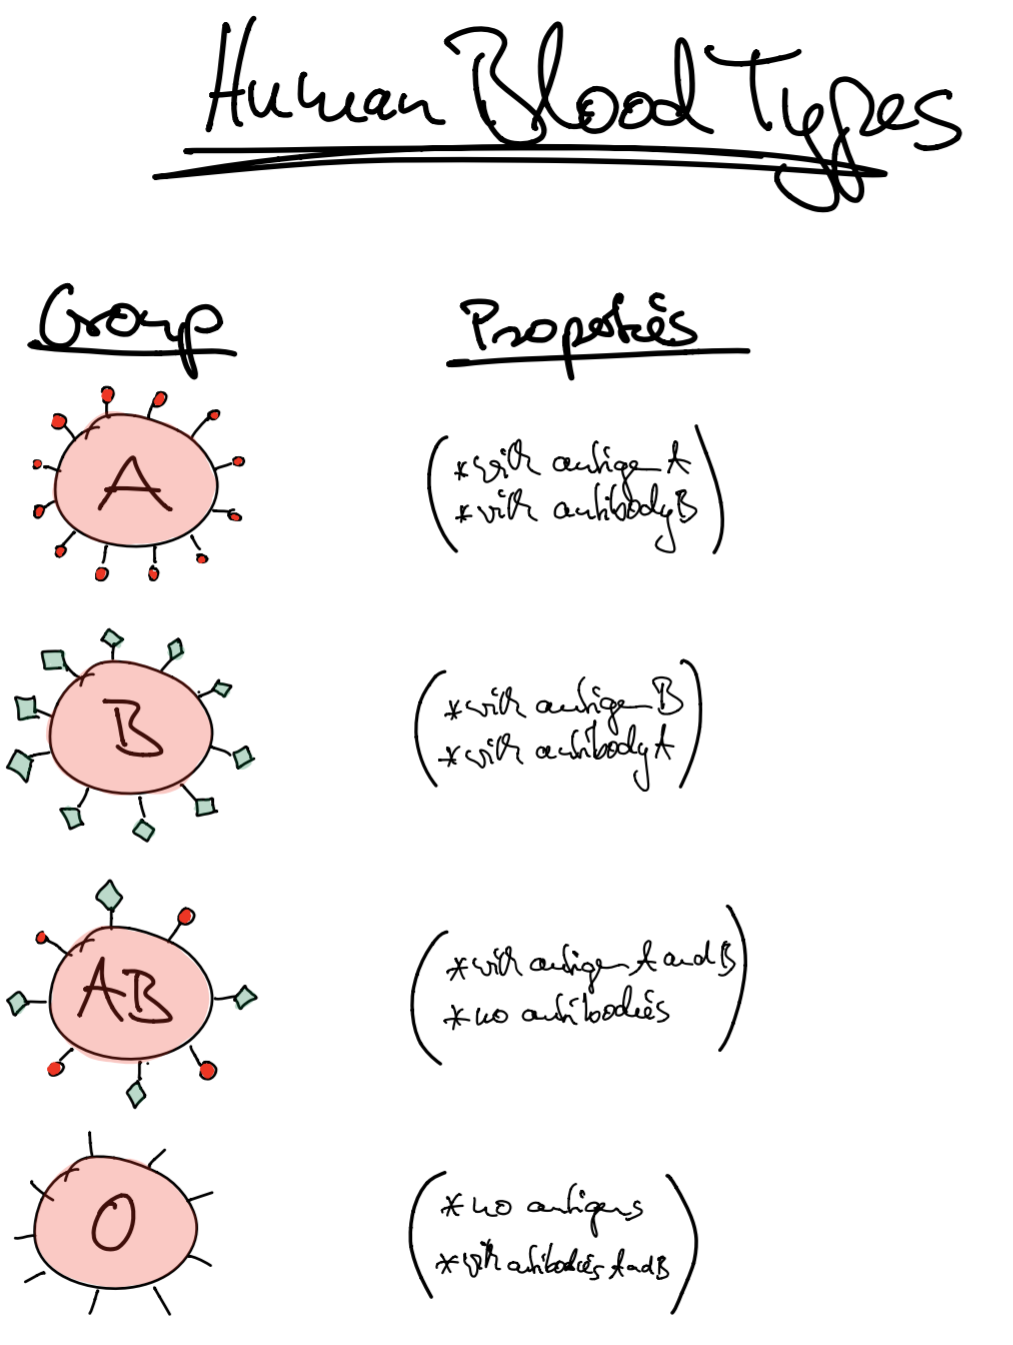 Human Blood Types
Group
Properties
A
* with antigen A
* with antibody B
B
* with antigen B
* with antibody A
AB
* with antigen A and B
* no antibodies
O
* no antigens
* with antibodies A and B